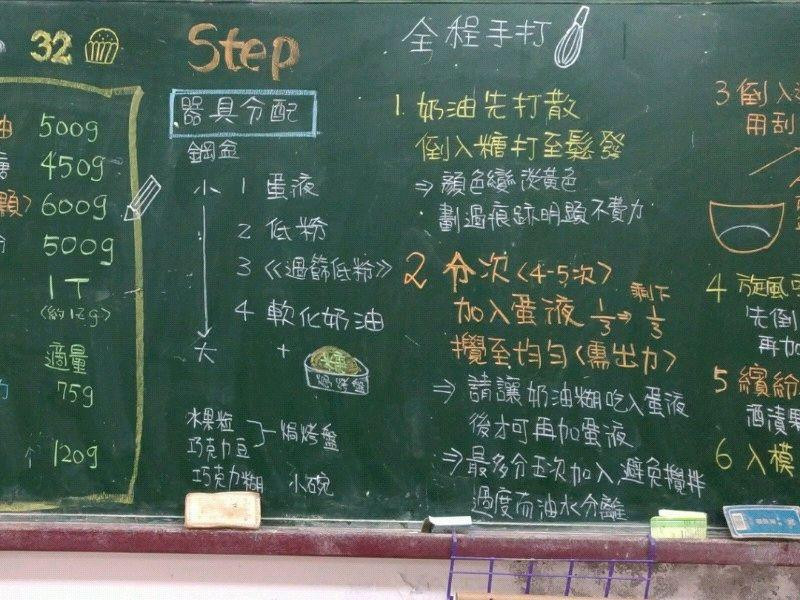 32
油 500g
糖 450g
顆) 600g
粉 500g
1T
(約12g)
適量
75g
↑ 120g
Step
器具分配
鋼盆
小 1 蛋液
2 低粉
3 《過篩低粉》
4 軟化奶油
大 + 糖
焗烤盤
水果粒
巧克力豆 焗烤盤
巧克力糊 小碗
全程手打
1. 奶油先打散
倒入糖打至鬆發
⇒ 顏色變淡黃色
· 劃過痕跡明顯不費力
2 分次(4-5次)
加入蛋液 1/3 → 剩下 1/3
攪至均勻(需出力)
⇒ 請讓奶油糊吃入蛋液
後才可再加蛋液
⇒ 最多分五次加入,避免攪拌
過度而油水分離
3 倒入
用刮
4 旋風
先倒
再加
5 繽紛
酒漬果
6 入模